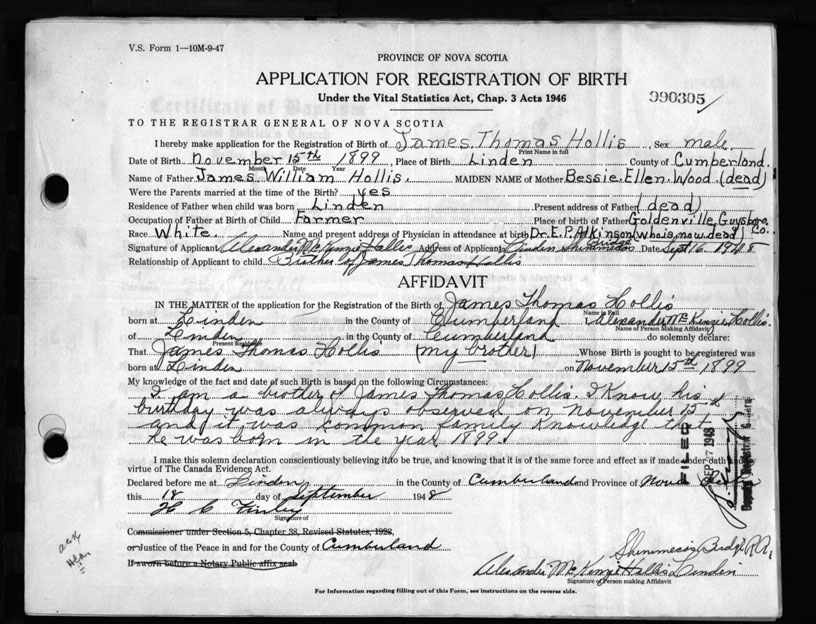 V.S. Form 1—10M-9-47
PROVINCE OF NOVA SCOTIA
APPLICATION FOR REGISTRATION OF BIRTH
Under the Vital Statistics Act, Chap. 3 Acts 1946
990305
TO THE REGISTRAR GENERAL OF NOVA SCOTIA
I hereby make application for the Registration of Birth of James Thomas Hollis, Sex male
Print Name in full
Date of Birth November 15th 1899, Place of Birth Linden County of Cumberland.
Month Date Year
Name of Father James William Hollis. MAIDEN NAME of Mother Bessie Ellen Wood (dead)
Were the Parents married at time of the Birth? yes
Residence of Father when child was born Linden Present address of Father (dead)
Occupation of Father at Birth of Child Farmer Place of birth of Father Goldenville, Guysboro Co.
Race White. Name and present address of Physician in attendance at birth Dr. E. P. Atkinson (who is now dead)
Signature of Applicant Alexander McKenzie Hollis Address of Applicant Linden Shinimecas Bridge Date Sept 6. 1948
Relationship of Applicant to child Brother of James Thomas Hollis
AFFIDAVIT
IN THE MATTER of the application for the Registration of the Birth of James Thomas Hollis
Name in Full
born at Linden in the County of Cumberland I Alexander McKenzie Hollis.
Name of Person Making Affidavit
of Linden in the County of Cumberland do solemnly declare:
Present Residence
That James Thomas Hollis (my brother) Whose Birth is sought to be registered was
born at Linden on November 15th 1899
My knowledge of the fact and date of such Birth is based on the following Circumstances:
I am a brother of James Thomas Hollis. I know his
birthday was always observed on November 15
and it was common family knowledge that
he was born in the year 1899.
I make this solemn declaration conscientiously believing it to be true, and knowing that it is of the same force and effect as if made under oath and by
virtue of The Canada Evidence Act.
Declared before me at Linden in the County of Cumberland and Province of Nova Scotia
this 18 day of September 1948
H C Finley
Signature of
Commissioner under Section 5, Chapter 38, Revised Statutes, 1923,
or Justice of the Peace in and for the County of Cumberland
If sworn before a Notary Public affix seal
Shinimecas Bridge R.R.
Alexander McKenzie Hollis Linden
Signature of Person making Affidavit
For Information regarding filling out of this Form, see instructions on the reverse side.
FILED
SEP 27 1948
Deputy Registrar General